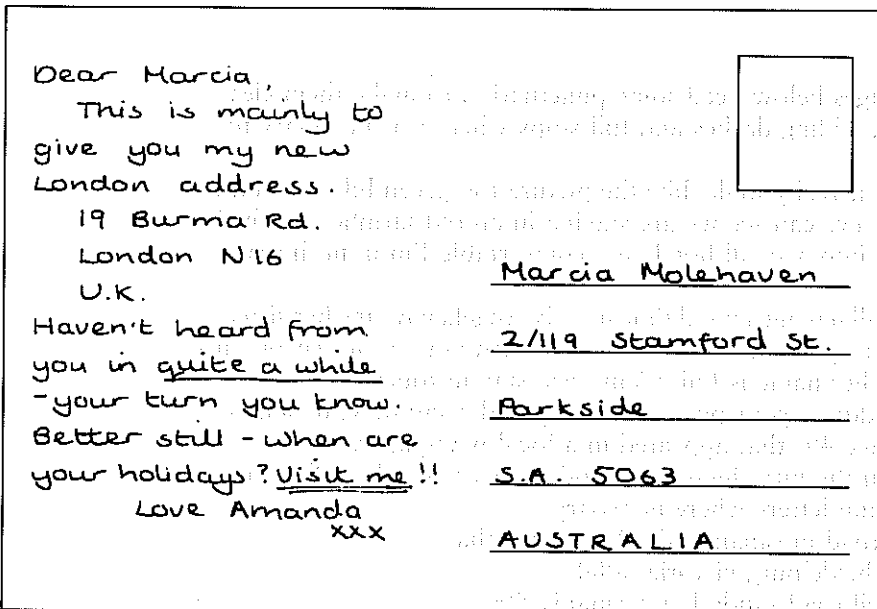 Dear Marcia,
This is mainly to
give you my new
London address.
19 Burma Rd.
London N16
U.K.
Haven't heard from
you in quite a while
- your turn you know.
Better still - when are
your holidays? Visit me!!
Love Amanda
xxx
Marcia Molehaven
2/119 Stamford St.
Parkside
S.A. 5063
AUSTRALIA